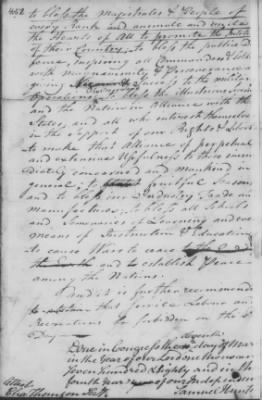 452 to bless the Magistrates & People of
every Rank and animate and unite
the Hearts of All to promote the
of their Country, to bless the publick
force, inspiring all Commanders & Sold
with magnanimity & Perseverance
giving Success to the military
Operations, to bless the illustrious
and the Nation in Alliance with these
States, and all who interest themselves
in the Support of our Rights & Libert
to make that Alliance of perpetual
and extensive Usefulness to those imme
diately concerned and mankind in
general; to fruitful Seasons
and to bless our Industry, Trade &
manufactures, to bless all Schools
and Seminaries of Learning and every
means of Instruction & Education
to cause Wars to cease
and to establish Peace
among the Nations.
And it is further recommende
that servile Labour and
Recreations be forbidden on the s
Day
Done in Congress the day of
in the Year of our Lord one thousand
seven hundred & eighty and in the
fourth Year of our Independence
Attest Samuel Hunti
Chas Thomson Secy